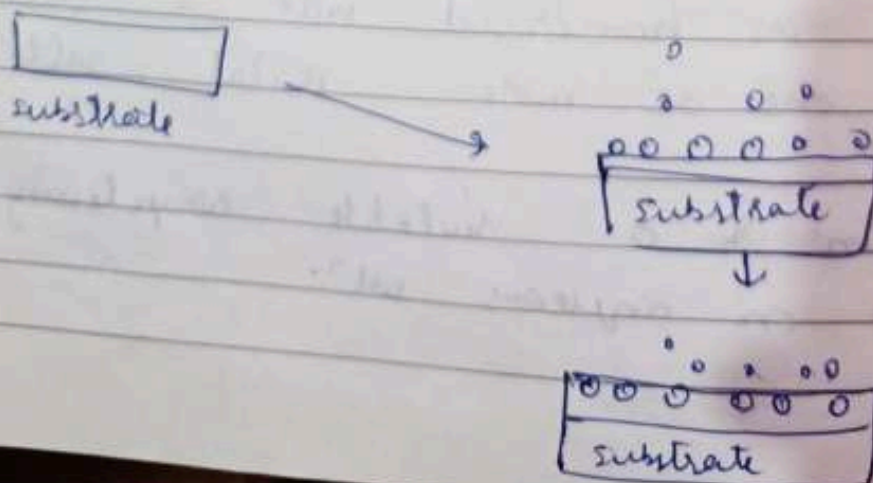 substrate
substrate
substrate